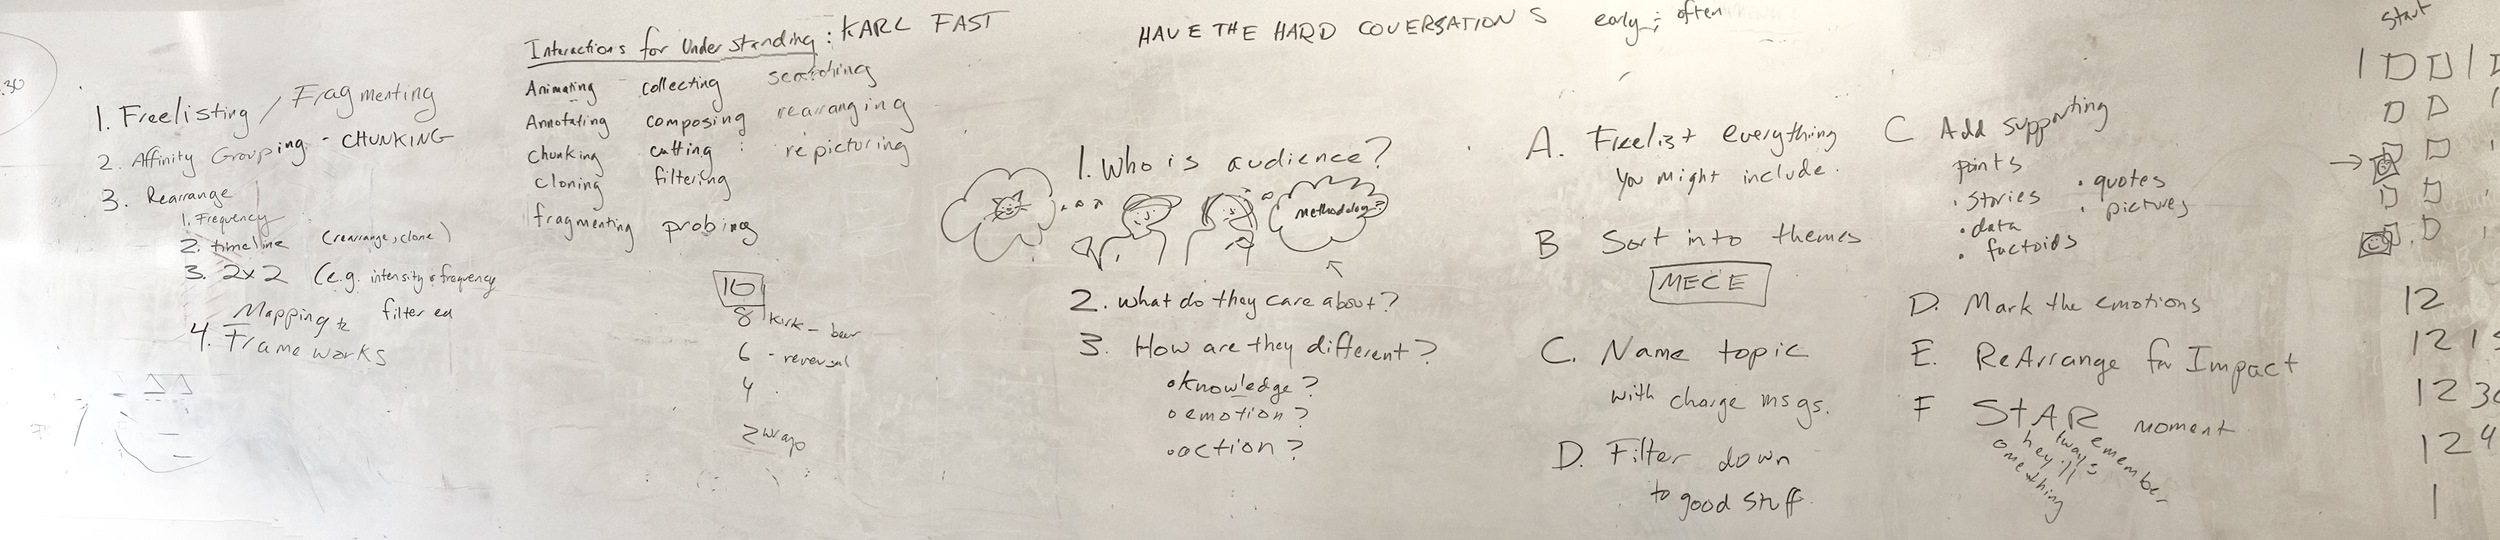 30
1. Freelisting / Fragmenting
2. Affinity Grouping - CHUNKING
3. Rearrange
1. Frequency
2. timeline (rearrange, clone)
3. 2x2 (e.g. intensity & frequency
filter ed
4. Mapping &
Frameworks
Interactions for Understanding: KARL FAST
Animating
Annotating
chunking
cloning
fragmenting
collecting
composing
cutting
filtering
probing
searching
rearranging
repicturing
10
8 Kirk - beer
6 - reversal
4
2 wrap
HAVE THE HARD COVERSATIONS early & often
1. Who is audience?
methodology?
2. what do they care about?
3. How are they different?
knowledge?
emotion?
action?
A. Freelist everything
you might include.
B Sort into themes
MECE
C. Name topic
with charge msgs.
D. Filter down
to good stuff.
C Add supporting
points
• stories
• data
• factoids
• quotes
• pictures
D. Mark the emotions
E. ReArrange for Impact
F STAR moment
omething
hey'll
lways
emember
Start
12
12 1
12 3
12 4
1